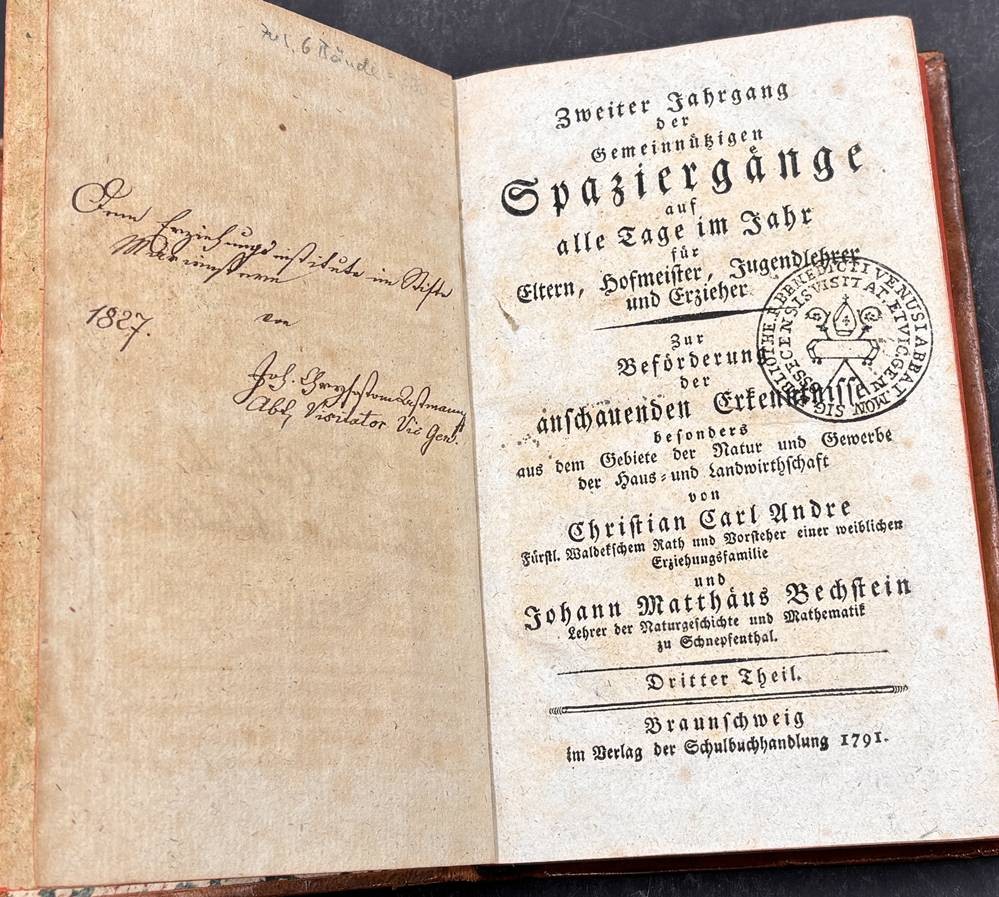 zus. 6 Bände
Dem Erziehungsinstitute im Stifte
Marienstern
von
1827.
Joh. Chrysostom
Abt, Visitator Vic Gen.
Zweiter Jahrgang
der
Gemeinnützigen
Spaziergänge
auf
alle Tage im Jahr
für
Eltern, Hofmeister, Jugendlehrer
und Erzieher
Zur
Beförderung
der
anschauenden Erkenntnisse
besonders
aus dem Gebiete der Natur und Gewerbe
der Haus- und Landwirthschaft
von
Christian Carl Andre
Fürstl. Waldekschem Rath und Vorsteher einer weiblichen
Erziehungsfamilie
und
Johann Matthäus Bechstein
Lehrer der Naturgeschichte und Mathematik
zu Schnepfenthal.
Dritter Theil.
Braunschweig
im Verlag der Schulbuchhandlung 1791.
SIG. BIBLIOTHE. R.BENEDICTI VENUSI ABBAT. MON
OSSECENSIS VISITAT. ET VIC. GEN.